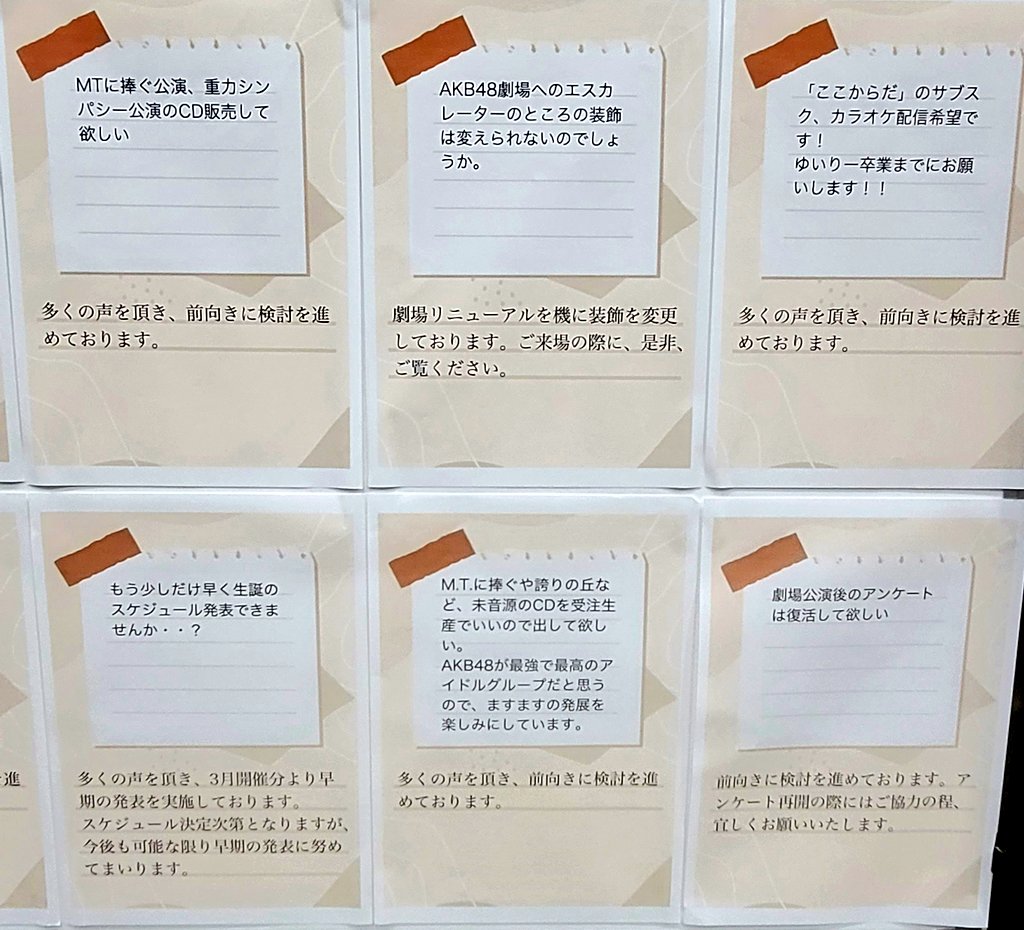 MTに捧ぐ公演、重力シン
パシー公演のCD販売して
欲しい
多くの声を頂き、前向きに検討を進
めております。
AKB48劇場へのエスカ
レーターのところの装飾
は変えられないのでしょ
うか。
劇場リニューアルを機に装飾を変更
しております。ご来場の際に、是非、
ご覧ください。
「ここからだ」のサブス
ク、カラオケ配信希望で
す！
ゆいりー卒業までにお願
いします！！
多くの声を頂き、前向きに検討を進
めております。
を進
もう少しだけ早く生誕の
スケジュール発表できま
せんか・・？
多くの声を頂き、3月開催分より早
期の発表を実施しております。
スケジュール決定次第となりますが、
今後も可能な限り早期の発表に努め
てまいります。
M.T.に捧ぐや誇りの丘な
ど、未音源のCDを受注生
産でいいので出して欲し
い。
AKB48が最強で最高のア
イドルグループだと思う
ので、ますますの発展を
楽しみにしています。
多くの声を頂き、前向きに検討を進
めております。
劇場公演後のアンケート
は復活して欲しい
前向きに検討を進めております。ア
ンケート再開の際にはご協力の程、
宜しくお願いいたします。